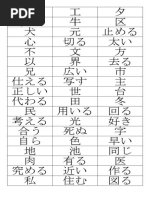 工 夕
牛 区
犬 元 止める
心 切る 太い
不 文 方
以 界 去る
兄 広い 市
仕える 写す 主
正しい 世 台
代わる 田 冬
民 用いる 回る
考える 光 好き
合う 死ぬ 字
自ら 色 早い
地 池 同じ
肉 有る 医
究める 近い 作る
私 住む 図る